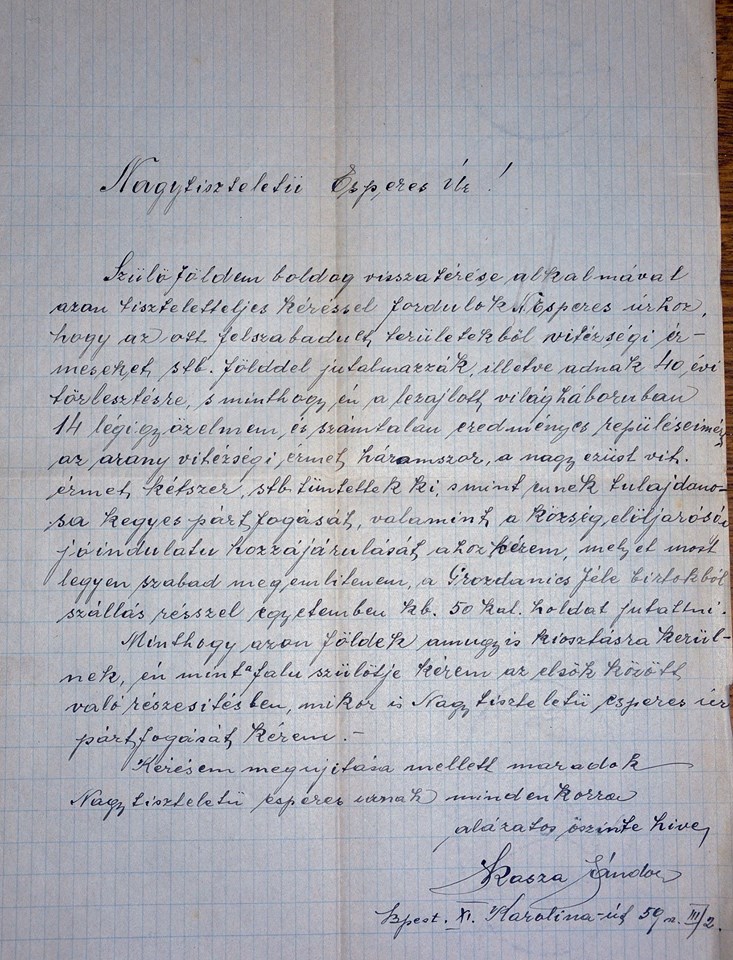 Nagytiszteletü Esperes Úr!
Szülőföldem boldog visszatérése alkalmával
azon tiszteletteljes kéréssel fordulok N.Esperes úrhoz,
hogy az ott felszabadult területekből vitézségi ér-
meseket, stb. földdel jutalmazzák, illetve adnak 40 évi
törlesztésre, s minthogy én a lezajlott világháboruban
14 légigyőzelmem és számtalan eredményes repüléseimért
az arany vitézségi érmet háramszor, a nagy ezüst vit.
érmet kétszer, stb tüntettek ki, s mint ennek tulajdano-
sa kegyes pártfogását, valamint a község elöljarósá
jóindulatu hozzájárulását ahoz kérem, melyet most
legyen szabad megemlitenem, a Grozdanics féle birtokból
szállás résszel egyetemben kb. 50 kat. holdat jutattni.
Minthogy azon földek amugyis kiosztásra kerül-
nek, én mint a falu szülötje kérem az elsők között
való részesitésben, mikor is Nagytiszteletü esperes úr
pártfogását kérem.-
Kérésem megujitása mellett maradok
Nagytiszteletü esperes urnak mindenkorra
alázatos őszinte hive,
Kasza Sándor
Bpest. XI. Karolina-út 59/a. III/2.